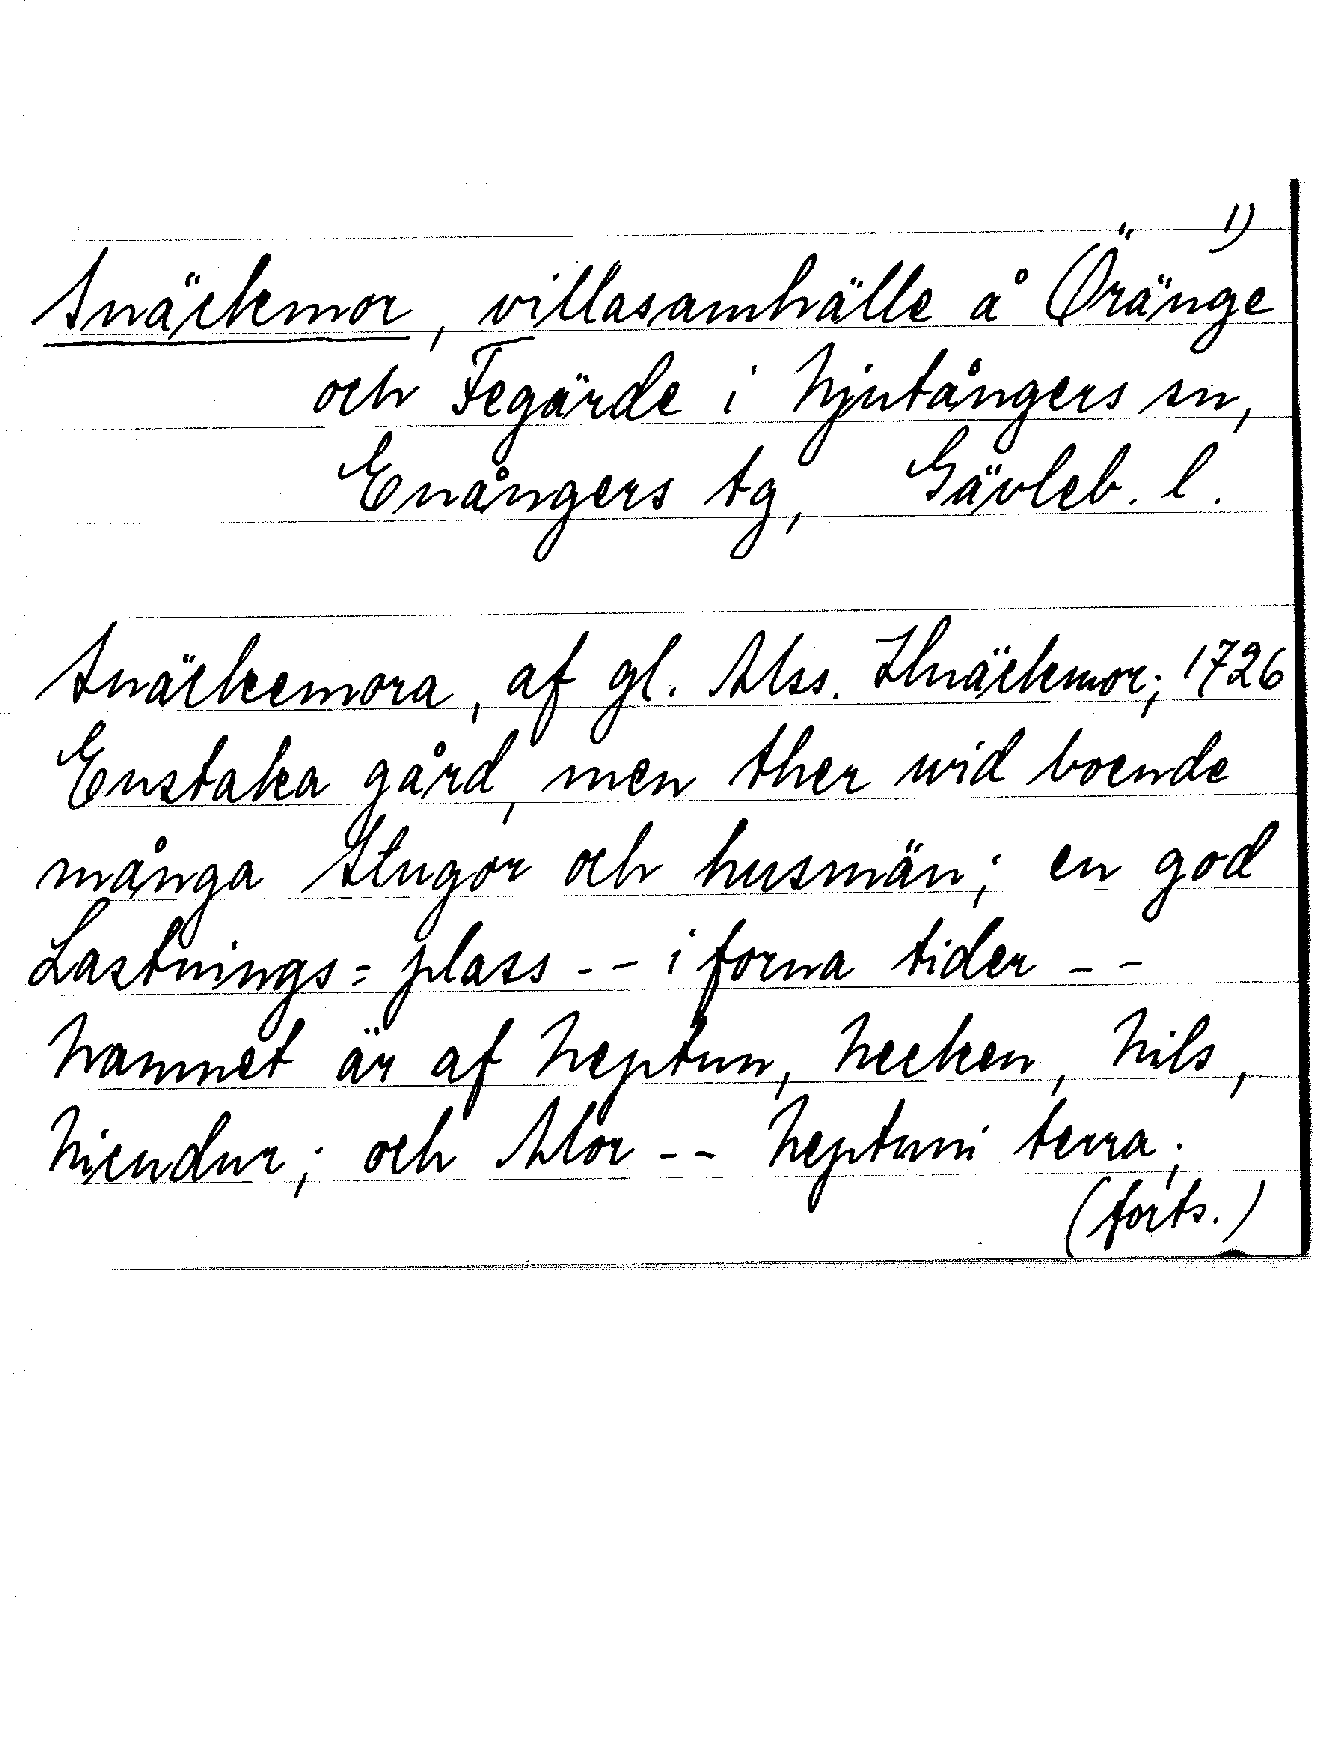 1)
Snäckemor, villasamhälle å Öränge
och Tegärde i Njutångers sn,
Enångers tg, Gävleb. l.
Snäckemora, af gl. Mss. Hnäckmor; 1726
Enstaka gård, men ther wid boende
många Stugor och husmän; en god
Lastnings= plass -- i forna tider --
Namnet är af Neptun, Necken, Nils,
Niendur; och Mor -- Neptuni terra;
(forts.)